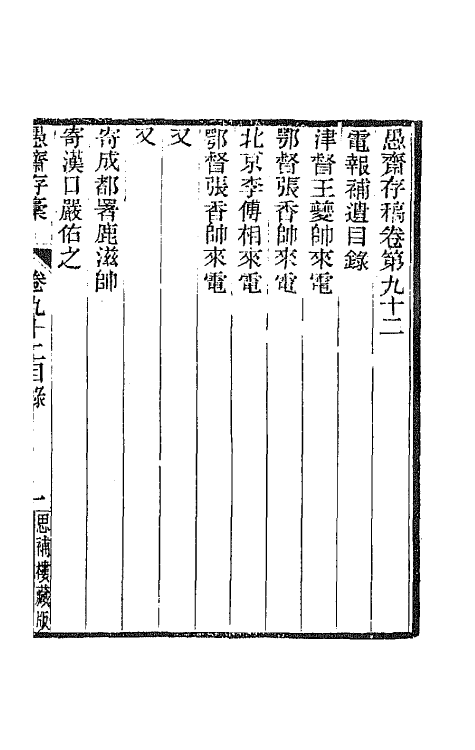 愚齋存稿卷第九十二
電報補遺目錄
津督王夔帥來電
鄂督張香帥來電
北京李傅相來電
鄂督張香帥來電
又
又
寄成都署鹿滋帥
寄漢口嚴佑之
愚齋存稾
卷九十二目錄
一
思補樓藏版